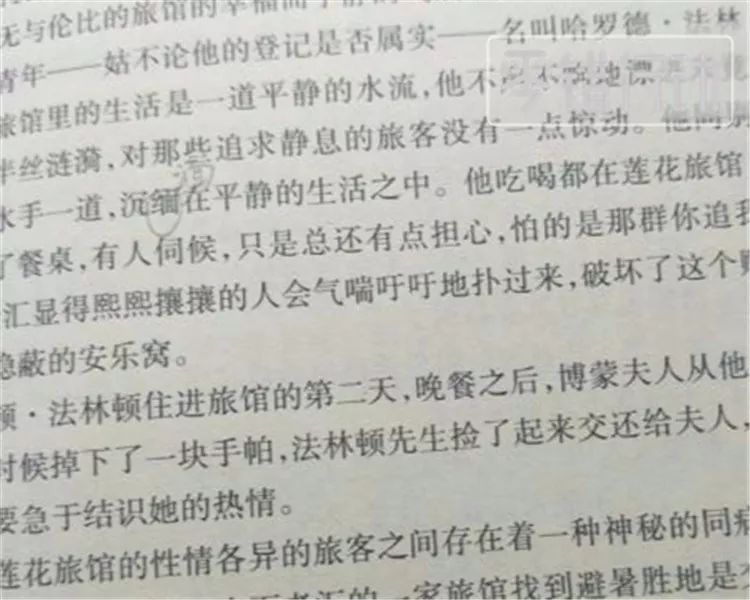 无与伦比的旅馆的幸福而宁静的
青年——姑不论他的登记是否属实——名叫哈罗德·法林
旅馆里的生活是一道平静的水流,他不
半丝涟漪,对那些追求静息的旅客没有一点惊动。他同别
水手一道,沉缅在平静的生活之中。他吃喝都在莲花旅馆
湎
了餐桌,有人伺候,只是总还有点担心,怕的是那群你追我
汇显得熙熙攘攘的人会气喘吁吁地扑过来,破坏了这个
隐蔽的安乐窝。
顿·法林顿住进旅馆的第二天,晚餐之后,博蒙夫人从他
时候掉下了一块手帕,法林顿先生捡了起来交还给夫人,
要急于结识她的热情。
莲花旅馆的性情各异的旅客之间存在着一种神秘的同病
一家旅馆找到避暑胜地是